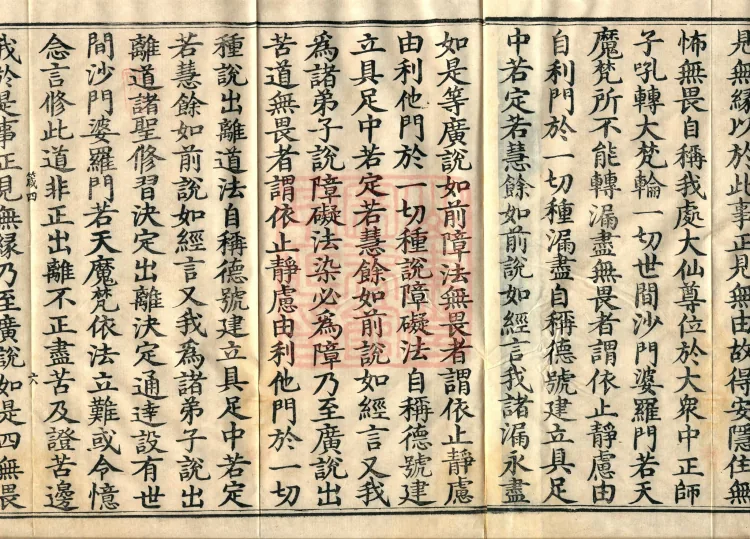 見無縁以於此事正見無由故得安隱住無
怖無畏自稱我處大仙尊位於大衆中正師
子吼轉大梵輪一切世間沙門婆羅門若天
魔梵所不能轉漏盡無畏者謂依止靜慮由
自利門於一切種漏盡自稱德號建立具足
中若定若慧餘如前說如經言我諸漏永盡
如是等廣說如前障法無畏者謂依止靜慮
由利他門於一切種說障礙法自稱德號建
立具足中若定若慧餘如前說如經言又我
爲諸弟子說障礙法染必爲障乃至廣說出
苦道無畏者謂依止靜慮由利他門於一切
種說出離道法自稱德號建立具足中若定
若慧餘如前說如經言又我爲諸弟子說出
離道諸聖修習決定出離決定通達設有世
間沙門婆羅門若天魔梵依法立難或令憶
念言修此道非正出離不正盡苦及證苦邊
箴四 六
我於是事正見無縁乃至廣說如是四無畏